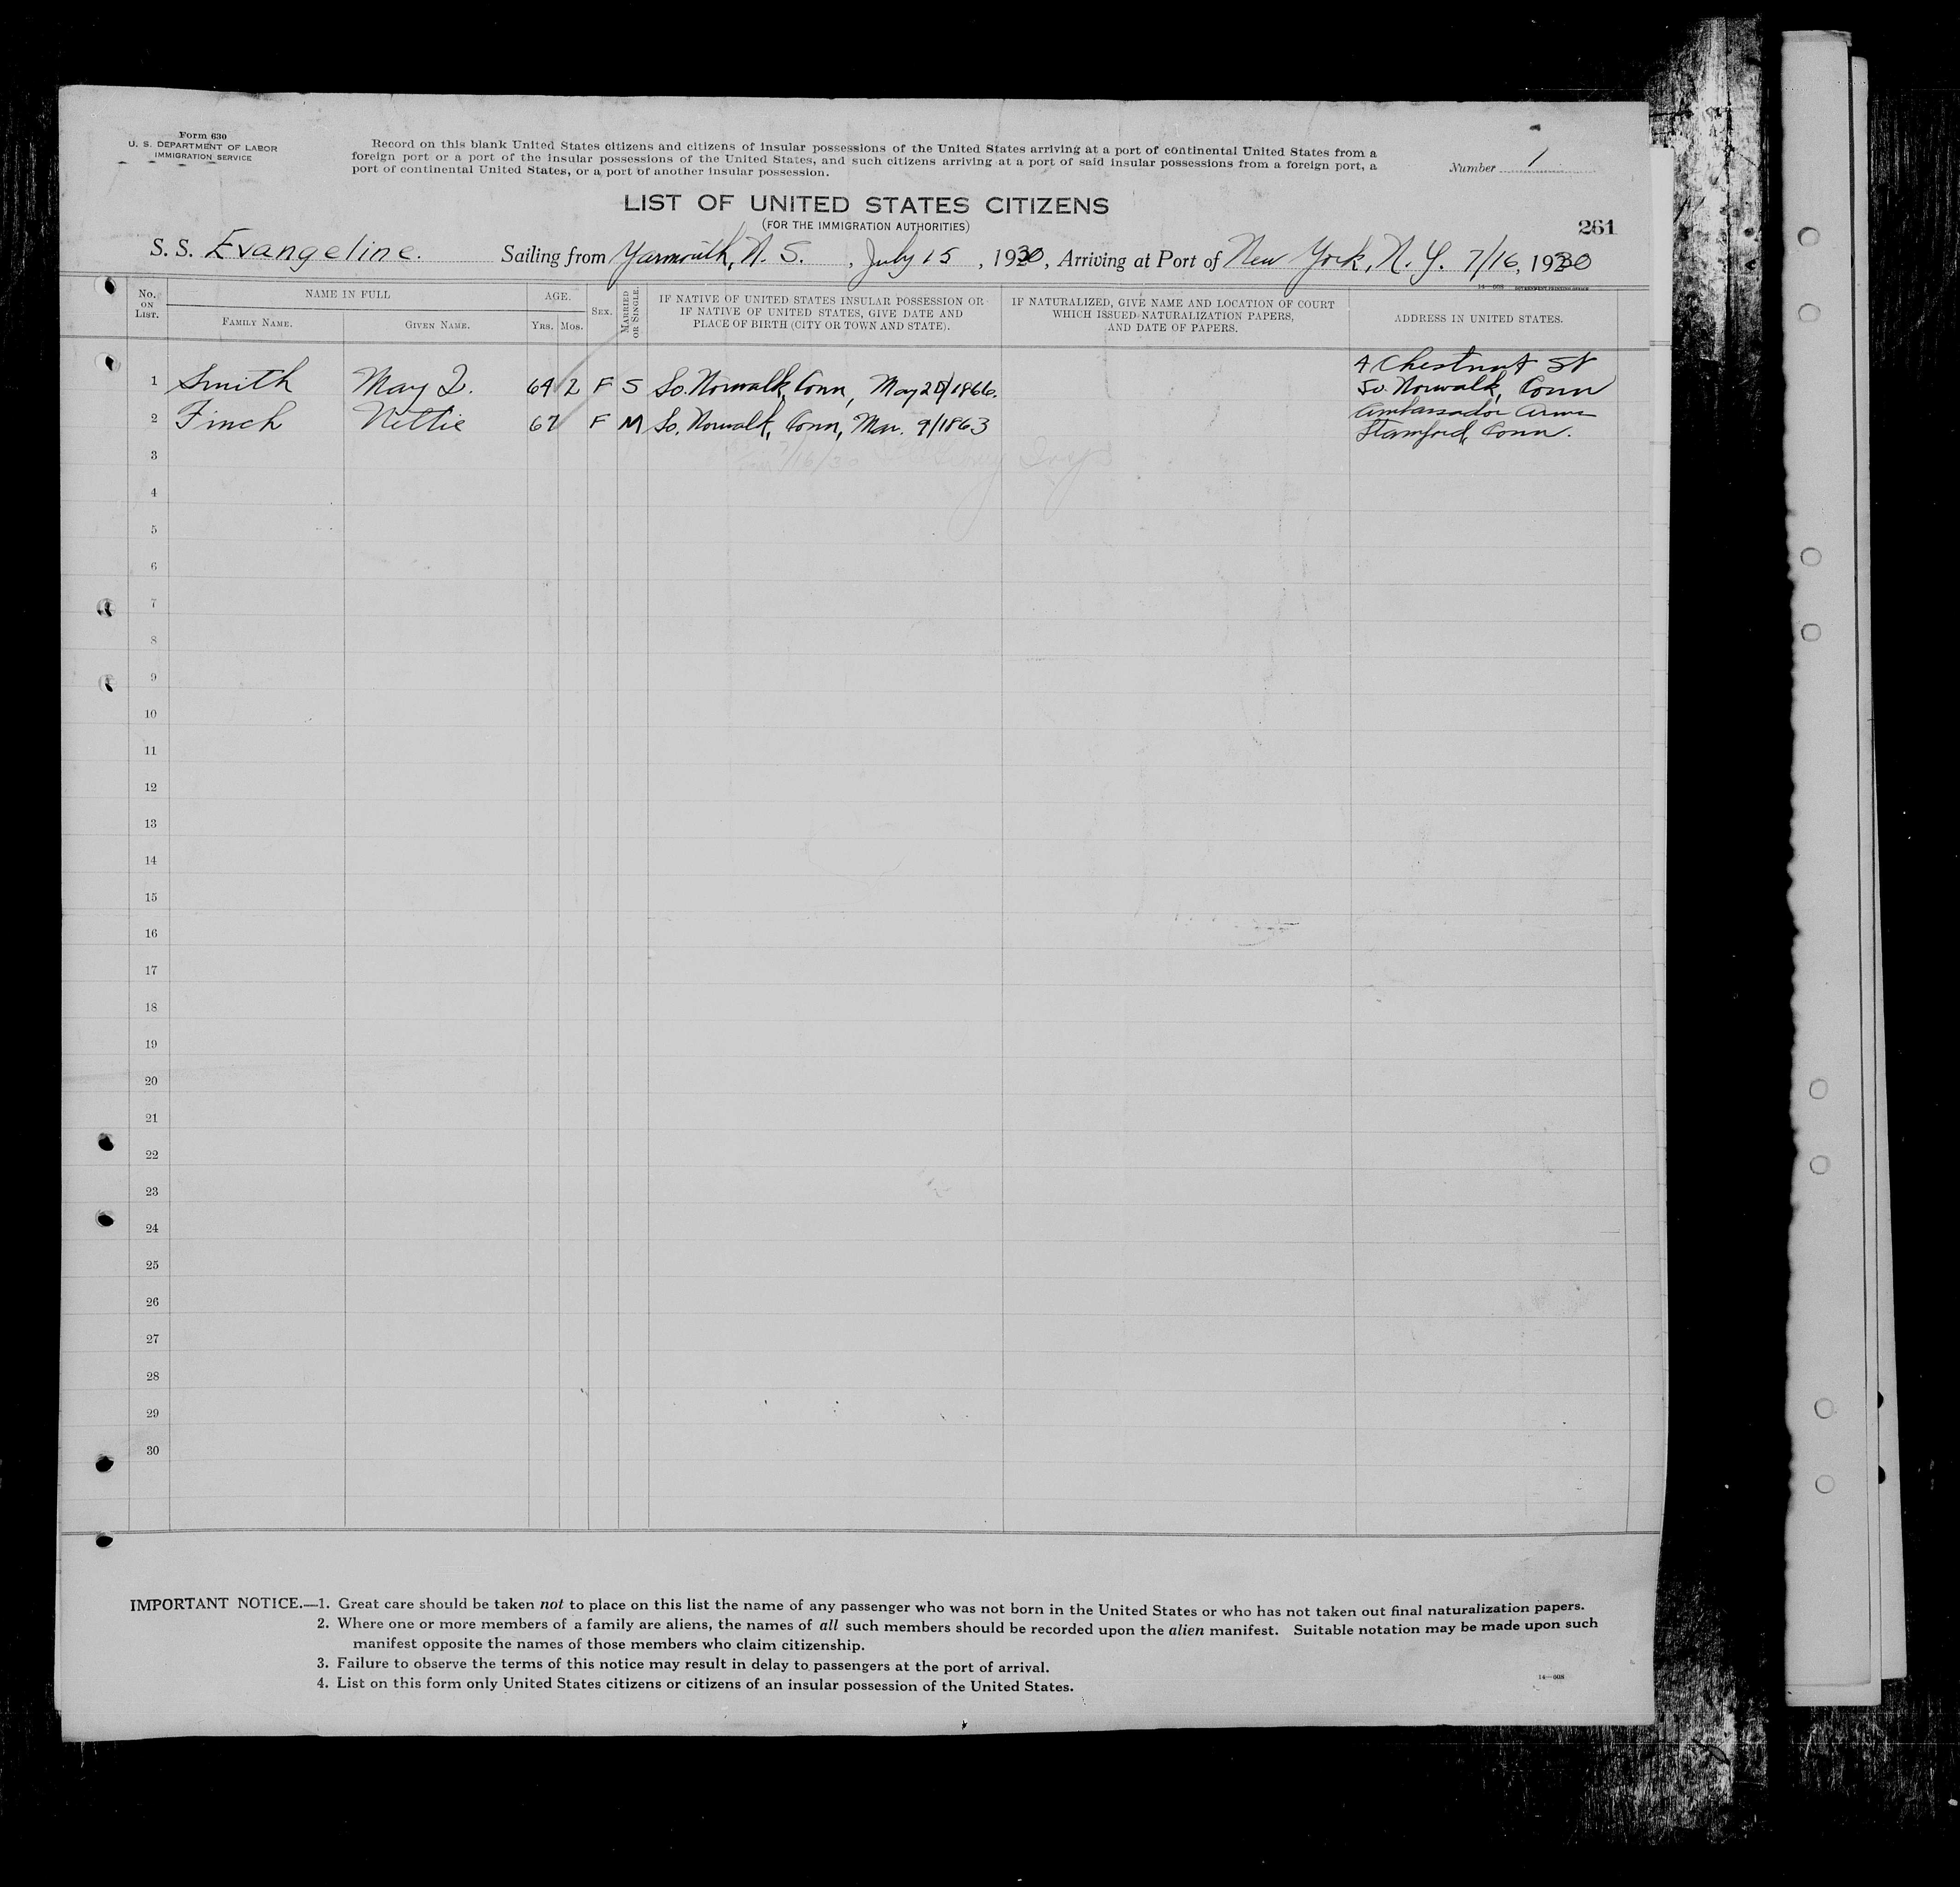 Form 630
U. S. DEPARTMENT OF LABOR
IMMIGRATION SERVICE
Record on this blank United States citizens and citizens of insular possessions of the United States arriving at a port of continental United States from a
foreign port or a port of the insular possessions of the United States, and such citizens arriving at a port of said insular possessions from a foreign port, a
port of continental United States, or a port of another insular possession.
Number 1
LIST OF UNITED STATES CITIZENS
(FOR THE IMMIGRATION AUTHORITIES)
261
S. S. Evangeline. Sailing from Yarmouth, N. S. , July 15 , 1930, Arriving at Port of New York, N. Y. 7/16, 1930
14—608 GOVERNMENT PRINTING OFFICE
No. ON LIST.
NAME IN FULL
FAMILY NAME.
GIVEN NAME.
AGE.
YRS. MOS.
SEX.
MARRIED OR SINGLE.
IF NATIVE OF UNITED STATES INSULAR POSSESSION OR
IF NATIVE OF UNITED STATES, GIVE DATE AND
PLACE OF BIRTH (CITY OR TOWN AND STATE).
IF NATURALIZED, GIVE NAME AND LOCATION OF COURT
WHICH ISSUED NATURALIZATION PAPERS,
AND DATE OF PAPERS.
ADDRESS IN UNITED STATES.
4 Chestnut St
1 Smith May 64 2 F S So. Norwalk, Conn, May /1866. So. Norwalk, Conn
Ambassador Arms
2 Finch Nettie 67 F M So. Norwalk, Conn, Mar. 9/1863 Stamford, Conn.
3
4
5
6
7
8
9
10
11
12
13
14
15
16
17
18
19
20
21
22
23
24
25
26
27
28
29
30
IMPORTANT NOTICE.—1. Great care should be taken not to place on this list the name of any passenger who was not born in the United States or who has not taken out final naturalization papers.
2. Where one or more members of a family are aliens, the names of all such members should be recorded upon the alien manifest. Suitable notation may be made upon such
manifest opposite the names of those members who claim citizenship.
3. Failure to observe the terms of this notice may result in delay to passengers at the port of arrival.
4. List on this form only United States citizens or citizens of an insular possession of the United States.
14—608